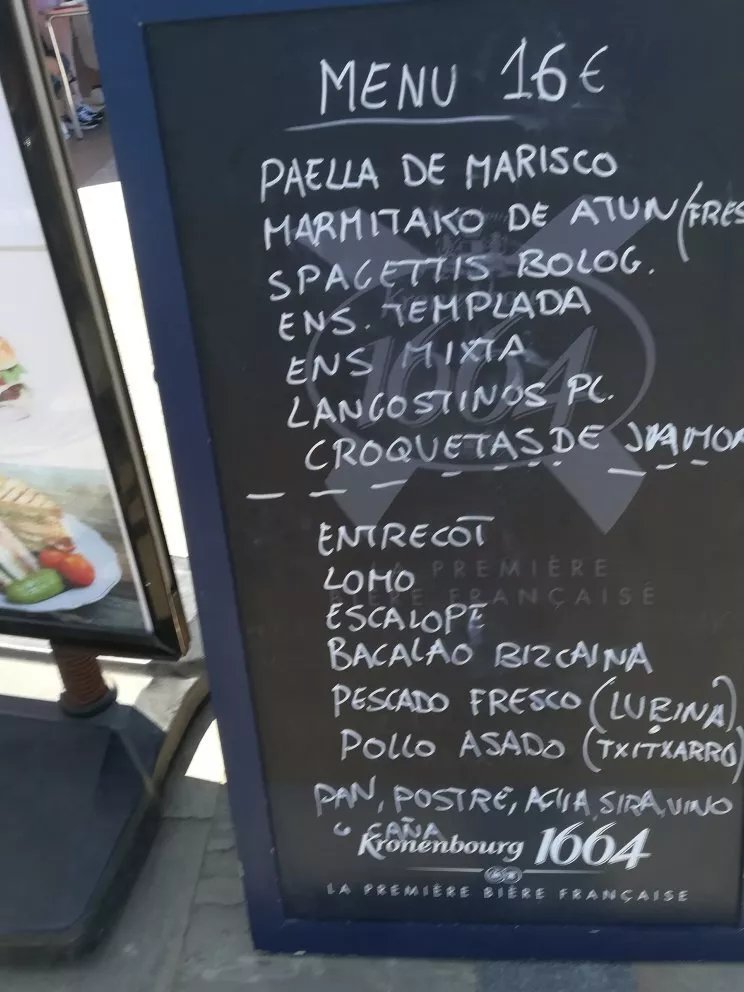 MENU 16€
PAELLA DE MARISCO
MARMITAKO DE ATUN (FRES
SPAGETTIS BOLOG.
ENS. TEMPLADA
ENS MIXTA
LANGOSTINOS PC.
CROQUETAS DE JAMON
ENTRECOT
LOMO
ESCALOPE
BACALAO BIZCAINA
PESCADO FRESCO (LUBINA)
POLLO ASADO (TXITXARRO)
PAN, POSTRE, AGUA, SIDRA, VINO
o CAÑA
Kronenbourg 1664
LA PREMIÈRE BIÈRE FRANÇAISE
1664
LA PREMIÈRE
BIÈRE FRANÇAISE